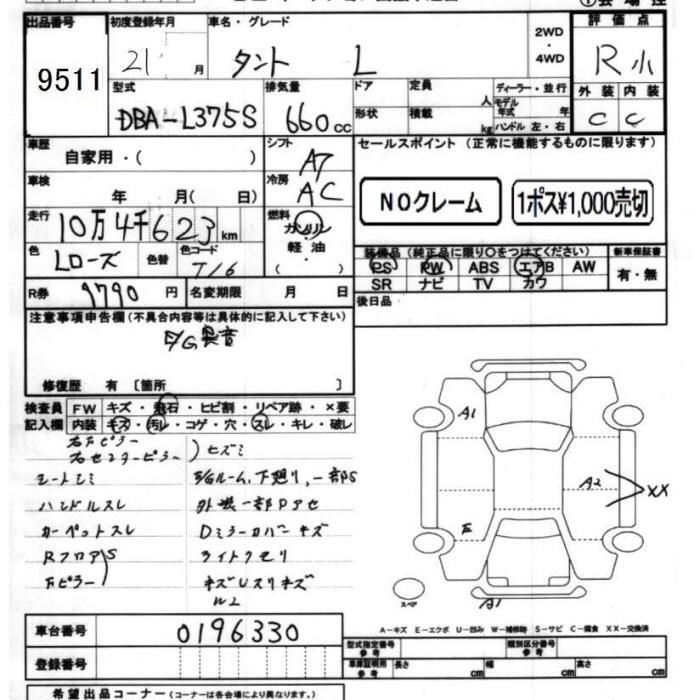 出品番号
9511
初度登録年月
21 月
車名・グレード
タント L
2WD
・
4WD
評価点
R 小
外装 内装
C C
型式
DBA-L375S
排気量
660cc
ドア
形状
定員
人
積載
kg
ディーラー・並行
モデル年式 年
ハンドル 左・右
車歴
自家用・(       )
シフト
AT
冷房
AC
車検
年 月( 日)
走行
10万4千623km
燃料
ガソリン
軽油・
(     )
色
Lローズ
色替
色コード
T16
セールスポイント (正常に機能するものに限ります)
NOクレーム
1ポス¥1,000売切
装備品 (純正品に限り○をつけてください)
PS PW ABS エアB AW
SR ナビ TV カワ
新車保証書
有・無
後日品
R券 9790 円
名変期限 月 日
注意事項申告欄(不具合内容等は具体的に記入して下さい)
E/G異音
修復歴 有 [箇所 ]
検査員
記入欄
FW キズ・飛石・ヒビ割・リペア跡・×要
内装 キズ・汚レ・コゲ・穴・スレ・キレ・破レ
右Fピラー
右センターピラー
)ヒズミ
シートシミ
ハンドルスレ
カーペットスレ
RフロアS
Fピラー
E/Gルーム、下廻り、一部S
外装一部ロアセ
Dミラーカバーキズ
ライトクモリ
キズUスリキズ
W2
A1
A2
XX
E
A1
スペア
A-キズ E-エクボ U-凹み W-補修跡 S-サビ C-腐食 XX-交換済
車台番号
0196330
登録番号
型式指定番号
参考
類別区分番号
参考
車庫証明用
参考
長さ cm
幅 cm
高さ cm
希望出品コーナー(コーナーは各会場により異なります。)